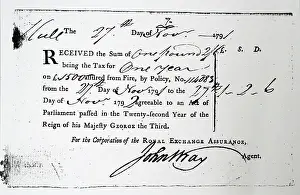 Hull The 27.th Day of Nov.r 1791
RECEIVED the Sum of One pound 2/6 £. S. D.
being the Tax for One Year
on £1500 assured from Fire, by Policy, No.
from the 27th Day of Nov.r 1791 to the 27th 1-2-6
Day of Nov.r 1792 agreeable to an Act of
Parliament passed in the Twenty-second Year of the
Reign of his Majesty GEORGE the Third.
For the Corporation of the ROYAL EXCHANGE ASSURANCE,
John Kay Agent.